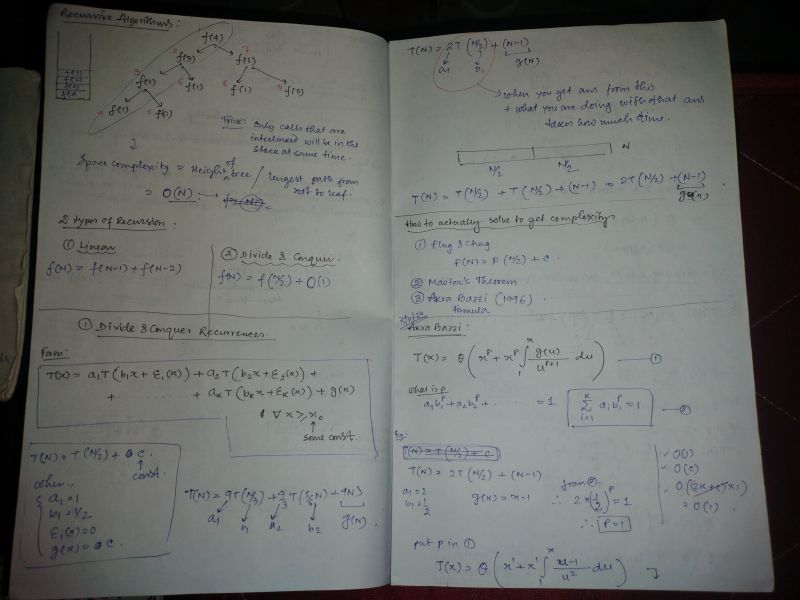 Recursive Algorithms:
f(4)
2
7
f(3)
f(2)
3
f(2)
6
f(1)
8
f(1)
f(0)
4
f(1)
5
f(0)
2
Trick: Only calls that are
interlinked will be in the
stack at same time.
Space complexity = Height of tree / Longest path from
root to leaf.
= O(N)
2 types of Recursion:
① Linear
f(N) = f(N-1) + f(N-2)
② Divide & Conquer.
f(N) = f(N/2) + O(1)
① Divide & Conquer Recurrences.
Form:
T(x) = a₁T(b₁x + ε₁(x)) + a₂T(b₂x + ε₂(x)) +
+ ........ + aₖT(bₖx + εₖ(x)) + g(x)
∀ x ≥ x₀
some const.
T(N) = T(N/2) + C
const.
a₁ = 1
b₁ = 1/2
ε₁(x) = 0
g(x) = C.
a₁ b₁ a₂ b₂ g(N)
T(N) = 2T(N/2) + (N-1)
a₁ b₁ g(N)
when you get ans from this
+ what you are doing with that ans
takes how much time.
N
N/2 N/2
T(N) = T(N/2) + T(N/2) + (N-1) = 2T(N/2) + (N-1)
g(N)
How to actually solve to get complexity.
① Plug & Chug
F(N) = F(N/2) + C.
② Master's Theorem
③ Akra Bazzi (1996)
Formula
Akra Bazzi:
T(x) = θ(x^p + x^p ∫₁^x g(u)/u^(p+1) du) — ①
what is p
a₁b₁^p + a₂b₂^p + ...... = 1
Σ_(i=1)^k aᵢbᵢ^p = 1 — ②
Eg:
T(N) = T(N/2) + C
T(N) = 2T(N/2) + (N-1)
a₁ = 2
b₁ = 1/2
g(x) = x-1
from ②
∴ 2 × (1/2)^p = 1
∴ P = 1
O(1)
O(C)
= O(1).
put P in ①
T(x) = θ(x¹ + x¹ ∫₁^x u-1/u² du)